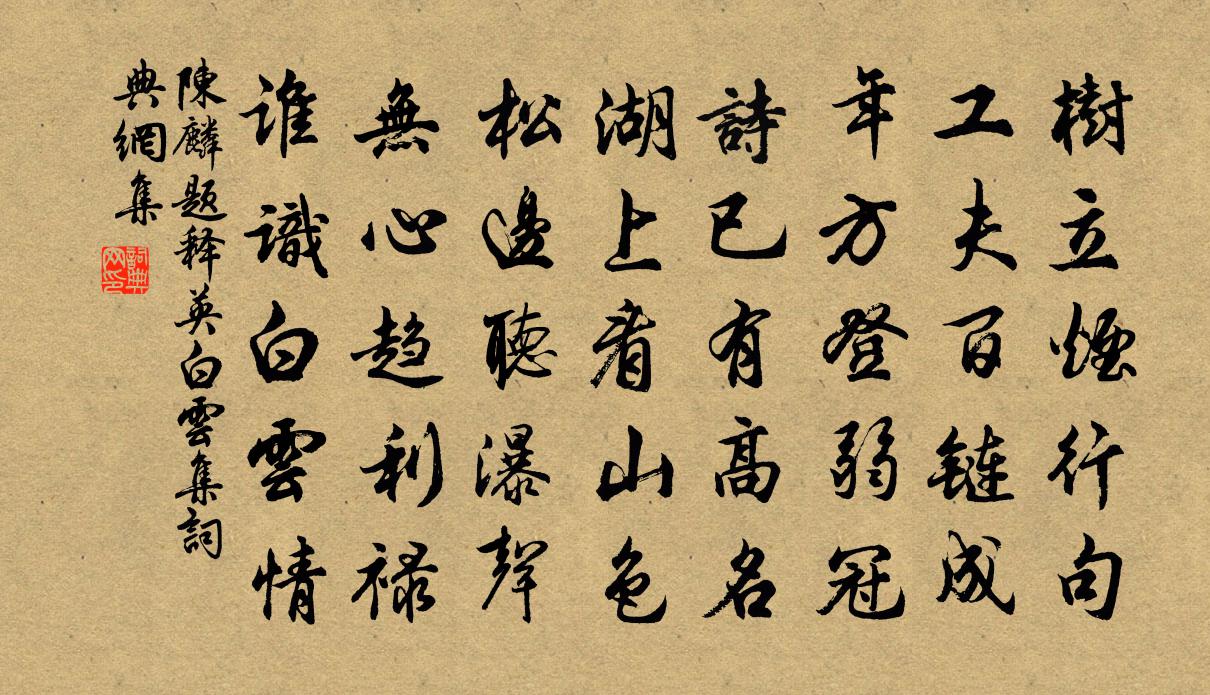 樹立煙行句
工夫百鏈成
年方登弱冠
詩已有高名
湖上看山色
松邊聽瀑聲
無心趋利禄
誰識白雲情
陳麟题释英白雲集詞
典網集
詞典网印